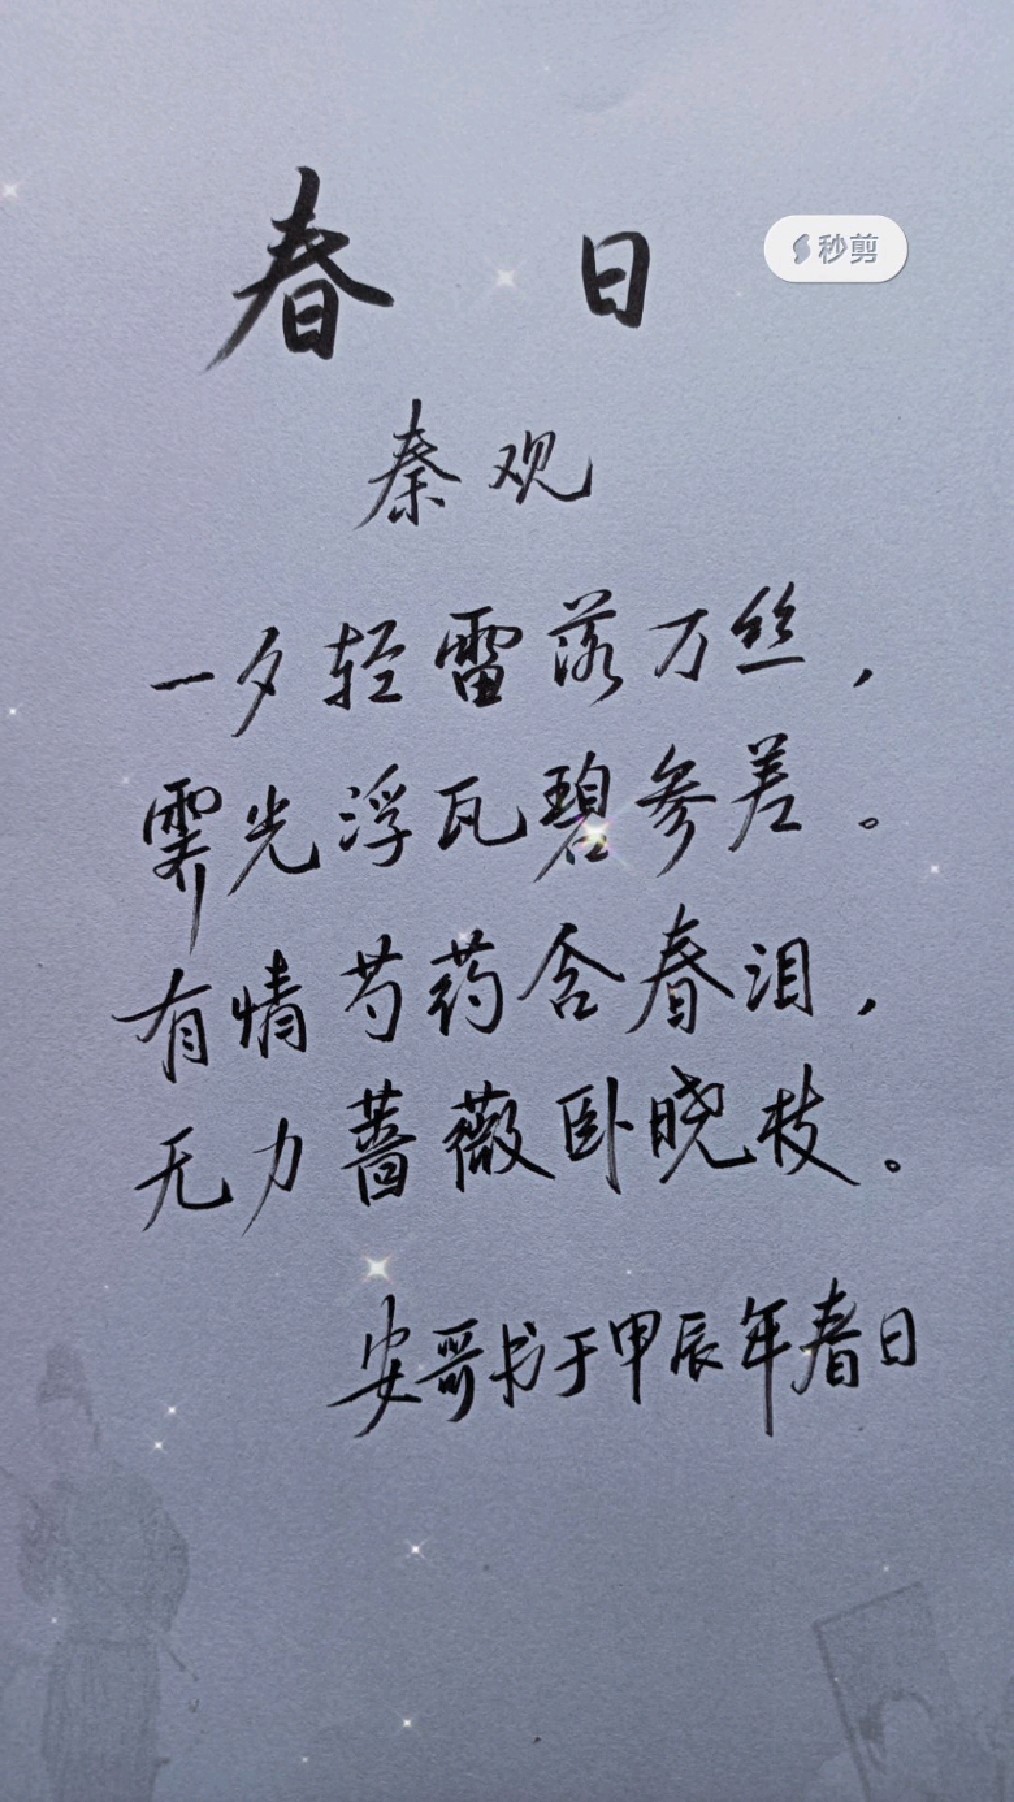 春日
秒剪
秦观
一夕轻雷落万丝，
霁光浮瓦碧参差。
有情芍药含春泪，
无力蔷薇卧晓枝。
安哥书于甲辰年春日